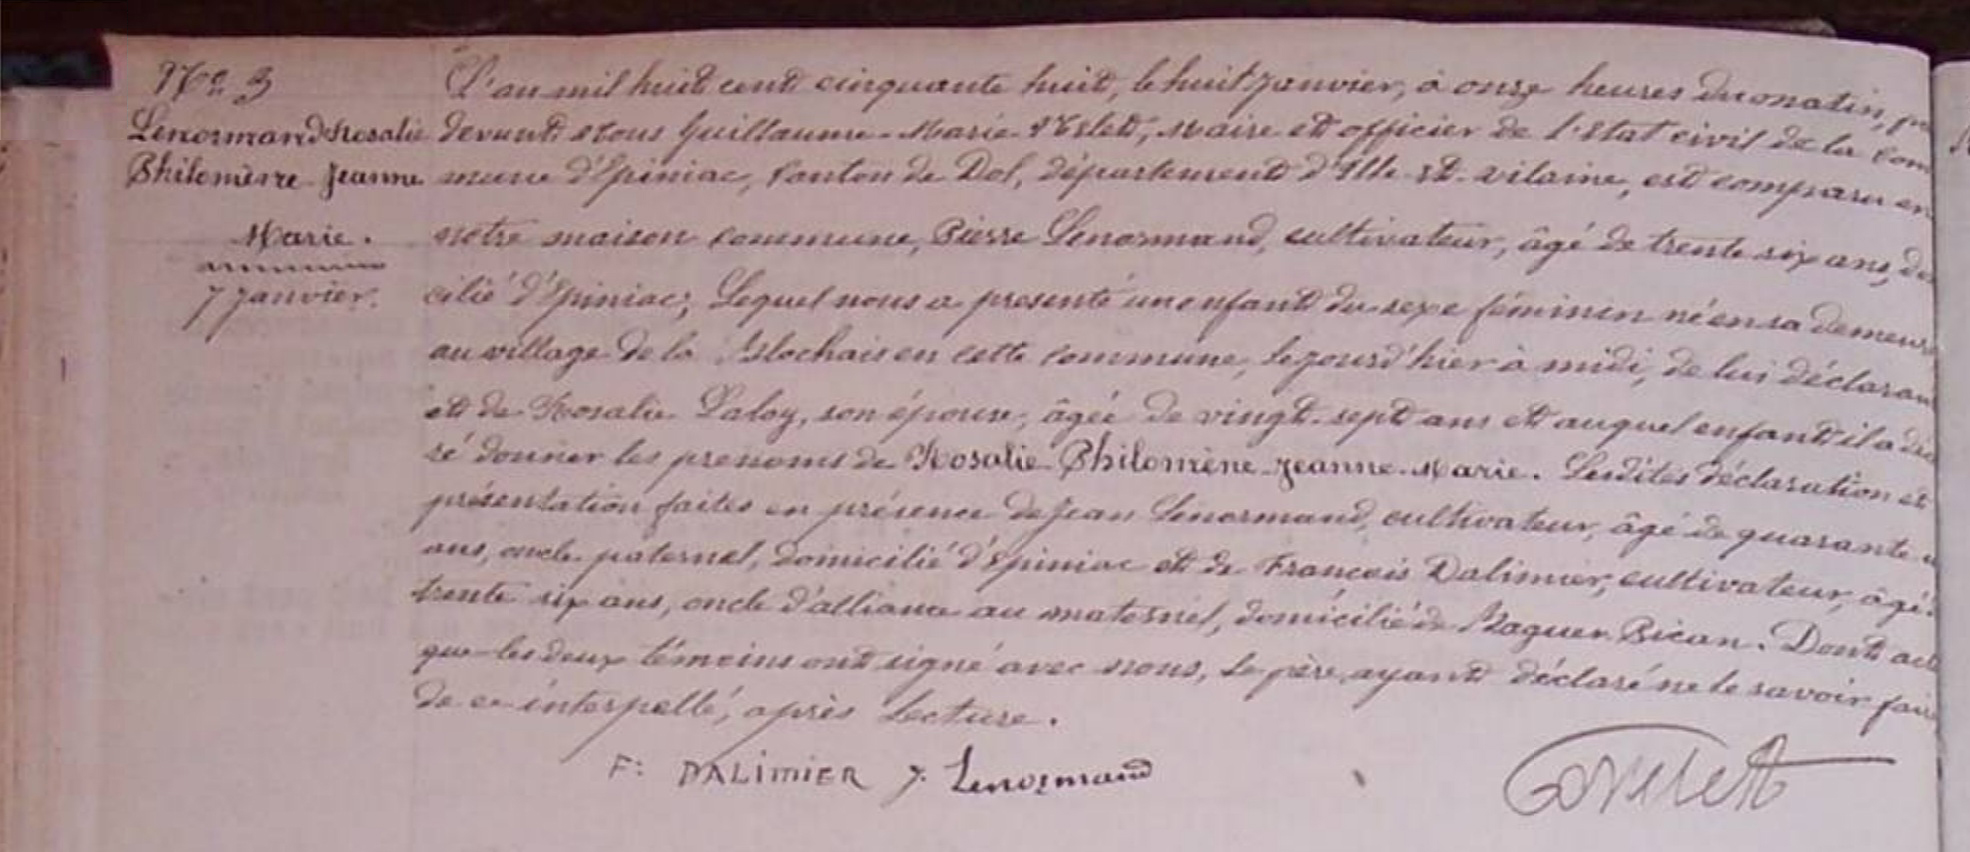 No. 3
Lenormand Rosalie
Philomène Jeanne
Marie.
7 Janvier.
L'an mil huit cent cinquante huit, le huit Janvier, à onze heures du matin,
devant nous Guillaume-Marie, Maire et officier de l'état civil de la com
mune d'Epiniac, Canton de Dol, département d'Ille-et-vilaine, est comparu en
notre maison commune, Pierre Lenormand, cultivateur, âgé de trente six ans, do
cilié d'Epiniac; Lequel nous a presenté un enfant du sexe féminin né en sa demeure
au village de la en cette commune, le jour d'hier à midi, de lui déclarant
et de Rosalie Laloy, son épouse, âgée de vingt-sept ans et auquel enfant il a
ré donner les prenoms de Rosalie-Philomène-Jeanne-Marie. Lesdites déclaration et
présentation faites en présence de Jean Lenormand, cultivateur, âgé de quarante
ans, oncle paternel, domicilié d'Epiniac et de François Dalimier, cultivateur, âgé
trente six ans, oncle d'alliance au maternel, domicilié de Baguer-Pican. Dont acte
que les deux témoins ont signé avec nous, le père, ayant déclaré ne le savoir faire
de ce interpellé, après Lecture.
F: DALIMIER J. Lenormand